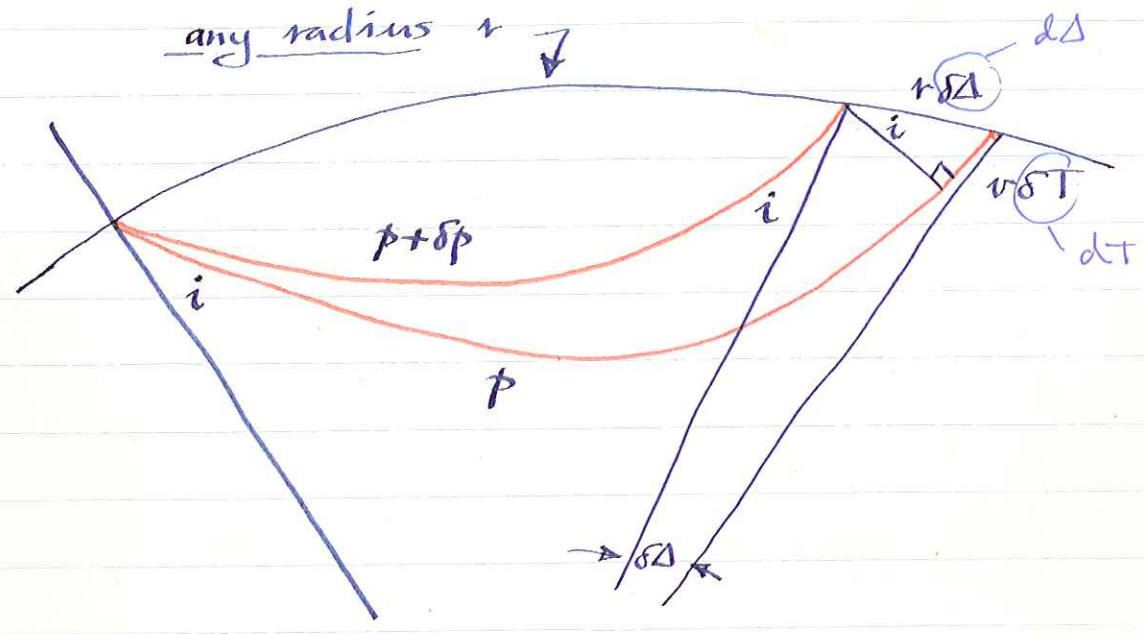 any radius r
dΔ
rδΔ
i
vδT
dT
i
p+δp
i
p
δΔ